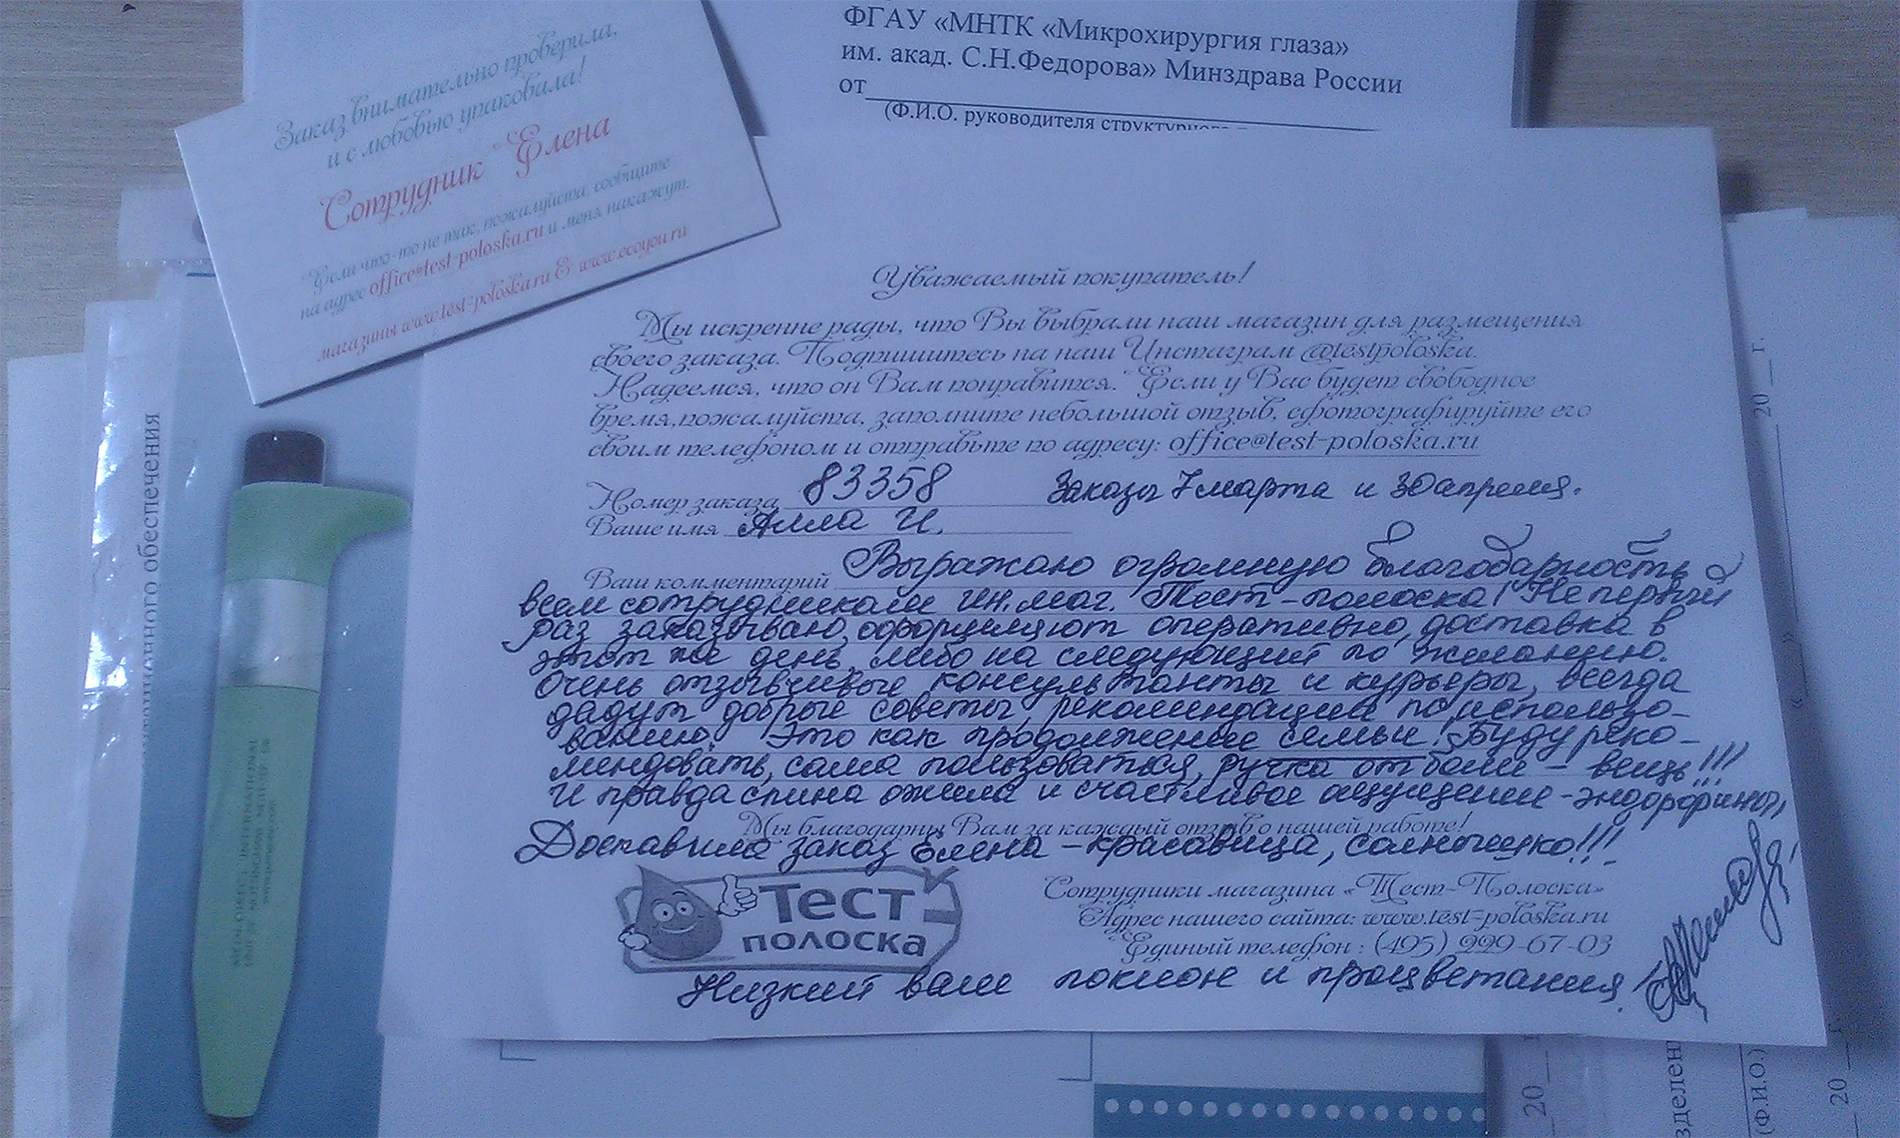 ФГАУ «МНТК «Микрохирургия глаза»
им. акад. С.Н.Федорова» Минздрава России
от
(Ф.И.О. руководителя структурного
Заказ внимательно проверила,
и с любовью упаковала!
Сотрудник Елена
Если что-то не так, пожалуйста, сообщите
на адрес office@test-poloska.ru и меня накажут.
магазины www.test-poloska.ru & www.ecoyou.ru
Уважаемый покупатель!
Мы искренне рады, что Вы выбрали наш магазин для размещения
своего заказа. Подпишитесь на наш Инстаграм @testpoloska.
Надеемся, что он Вам понравится. Если у Вас будет свободное
время,пожалуйста, заполните небольшой отзыв, сфотографируйте его
своим телефоном и отправьте по адресу: office@test-poloska.ru
Номер заказа 83358 Заказы 7 марта и 30 апреля.
Ваше имя Алла И.
Ваш комментарий Выражаю огромную благодарность
всем сотрудникам ин.маг. Тест-полоска! Не первый
раз заказываю, оформляют оперативно, доставка в
этот же день, либо на следующий по желанию.
Очень отзывчивые консультанты и курьеры, всегда
дадут добрые советы, рекомендации по использо-
ванию. Это как продолжение семьи! Буду реко-
мендовать, сама пользоваться, ручка от боли - вещь!!!
И правда спина ожила и счастливое ощущение - эндорфины,
Мы благодарны Вам за каждый отзыв о нашей работе!
Доставила заказ Елена - красавица, солнышко!!!
Тест
полоска
Сотрудники магазина «Тест-Полоска»
Адрес нашего сайта: www.test-poloska.ru
Единый телефон : (495) 229-67-03
Низкий вам поклон и процветания!
обеспечения
20 г.
20 г.
20
(Ф.И.О.)